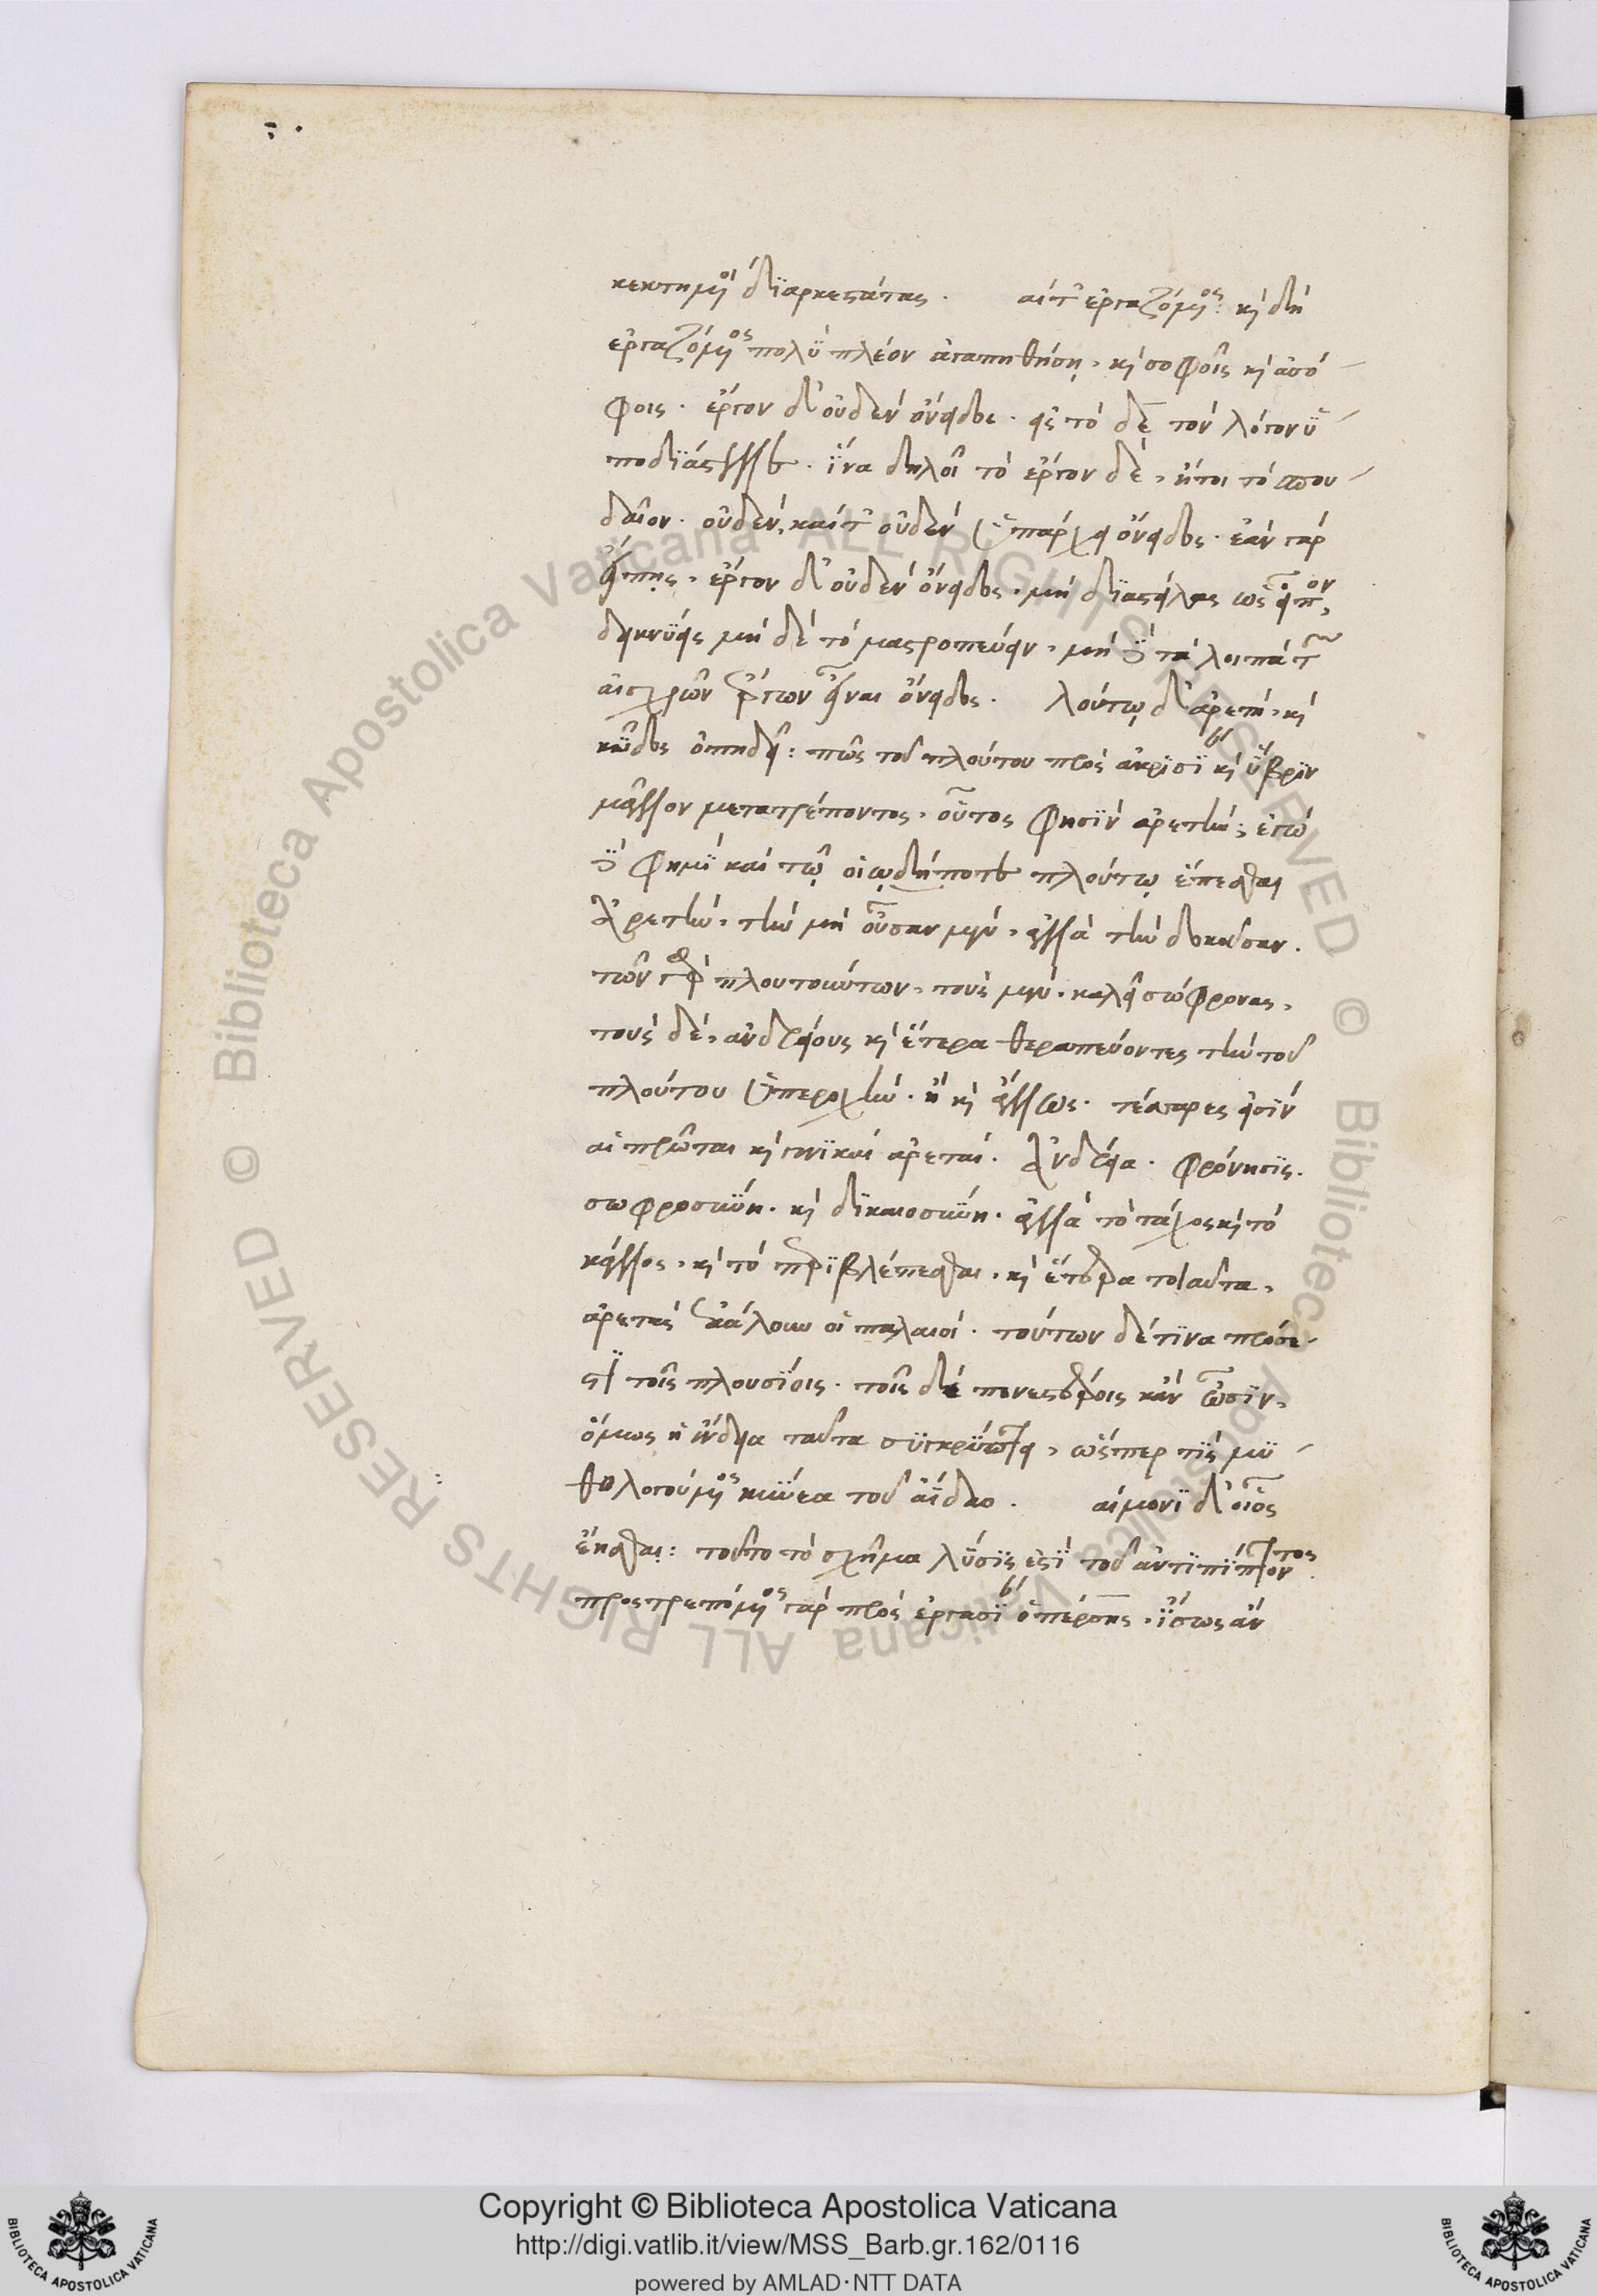 κεκτημένοι διαρκεστάτας. αίτ' ἐργαζόμενος: καὶ δὴ
ἐργαζόμενος πολὺ πλέον ἀγαπηθήσῃ, καὶ σοφοῖς καὶ ἀσό
φοις. ἔργον δ' οὐδὲν ὄνειδος. εἰς τὸ δὲ τὸν λόγον ὑ
ποδιάστελλε. ἵνα δηλοῖ τὸ ἔργον δὲ, ἤτοι τὸ σπου
δαῖον. οὐδὲν, καίτ' οὐδὲν ὑπάρχει ὄνειδος. ἐὰν γὰρ
εἴπῃς, ἔργον δ' οὐδὲν ὄνειδος, μὴ διαστείλας ὡς εἶπον,
δεικνύεις μὴ δὲ τὸ μαστροπεύειν, μὴ δὲ τὰ λοιπὰ τῶν
αἰσχρῶν ἔργων εἶναι ὄνειδος. λούτῳ δ' ἀρετὴ, καὶ
κῦδος ὀπηδεῖ: πῶς τοῦ πλούτου πρὸς ἀκρισίαν καὶ ὕβριν
μᾶλλον μετατρέποντος, οὗτος φησὶν ἀρετὴν; ἐγὼ
δὲ φημὶ καὶ τῷ οἱῳδήποτε πλούτῳ ἕπεσθαι
ἀρετὴν, τὴν μὴ οὖσαν μὲν, ἀλλὰ τὴν δοκοῦσαν.
τῶν γὰρ πλουτούντων, τοὺς μὲν, καλεῖ σώφρονας,
τοὺς δὲ, ἀνδρείους καὶ ἕτερα θεραπεύοντες τὴν τοῦ
πλούτου ὑπεροχὴν. ἢ καὶ ἄλλως. τέσσαρες εἰσὶν
αἱ πρῶται καὶ γενικαὶ ἀρεταί. ἀνδρεία. φρόνησις.
σωφροσύνη. καὶ δικαιοσύνη. ἀλλὰ τὸ τάχος καὶ τὸ
κάλλος, καὶ τὸ περιβλέπεσθαι, καὶ ἕτερα τοιαῦτα,
ἀρετὰς ἐκάλουν οἱ παλαιοί. τούτων δέ τινα πρόσε
στι τοῖς πλουσίοις. τοῖς δὲ πενεστέροις κἂν ὦσιν,
ὅμως ἡ ἔνδεια ταῦτα συγκρύπτει, ὥσπερ τις μυ
θολογούμενος κυνέα τοῦ ἄϊδαο. αίμονι δ' οἷος
ἔησθαι: τοῦτο τὸ σχῆμα λύσις ἐστὶ τοῦ ἀντιπίπτοντος
προστρεπόμενος γὰρ πρὸς ἐργασίαν ὁ πέρσης, ἴσως ἂν
Copyright © Biblioteca Apostolica Vaticana
http://digi.vatlib.it/view/MSS_Barb.gr.162/0116
powered by AMLAD·NTT DATA